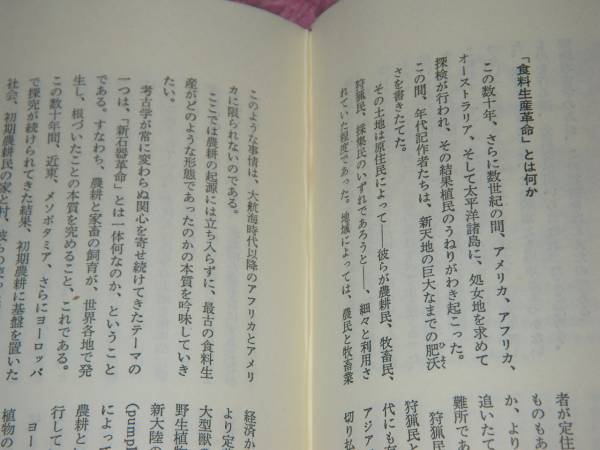 「食料生産革命」とは何か
この数十年、さらに数世紀の間、アメリカ、アフリカ、
オーストラリア、そして太平洋諸島に、処女地を求めて
探検が行われ、その結果植民のうねりがわき起こった。
この間、年代記作者たちは、新天地の巨大なまでの肥沃
ひよく
さを書きたてた。
その土地は原住民によって――彼らが農耕民、牧畜民、
狩猟民、採集民のいずれであろうと――、細々と利用さ
れていた程度であった。地域によっては、農民と牧畜業
者が定住
ものもあ
か、より
追いたて
難所であ
狩猟民
狩猟民と
代にも
アジア
切り払
このような事情は、大航海時代以降のアフリカとアメリ
カに限られないのである。
ここでは農耕の起源には立ち入らずに、最古の食料生
産がどのような形態であったのかの本質を吟味していき
たい。
考古学が常に変わらぬ関心を寄せ続けてきたテーマの
一つは、「新石器革命」とは一体何なのか、ということ
である。すなわち、農耕と家畜の飼育が、世界各地で発
生し、根づいたことの本質を究めること、これである。
この数十年間、近東、メソポタミア、さらにヨーロッパ
で探究が続けられてきた結果、初期農耕に基盤を置いた
社会、初期農耕民の家と村、彼らの
経済か
より定
大型獣
野生植物
新大陸の
(pump
によって
農耕と
行して
ヨー
植物の